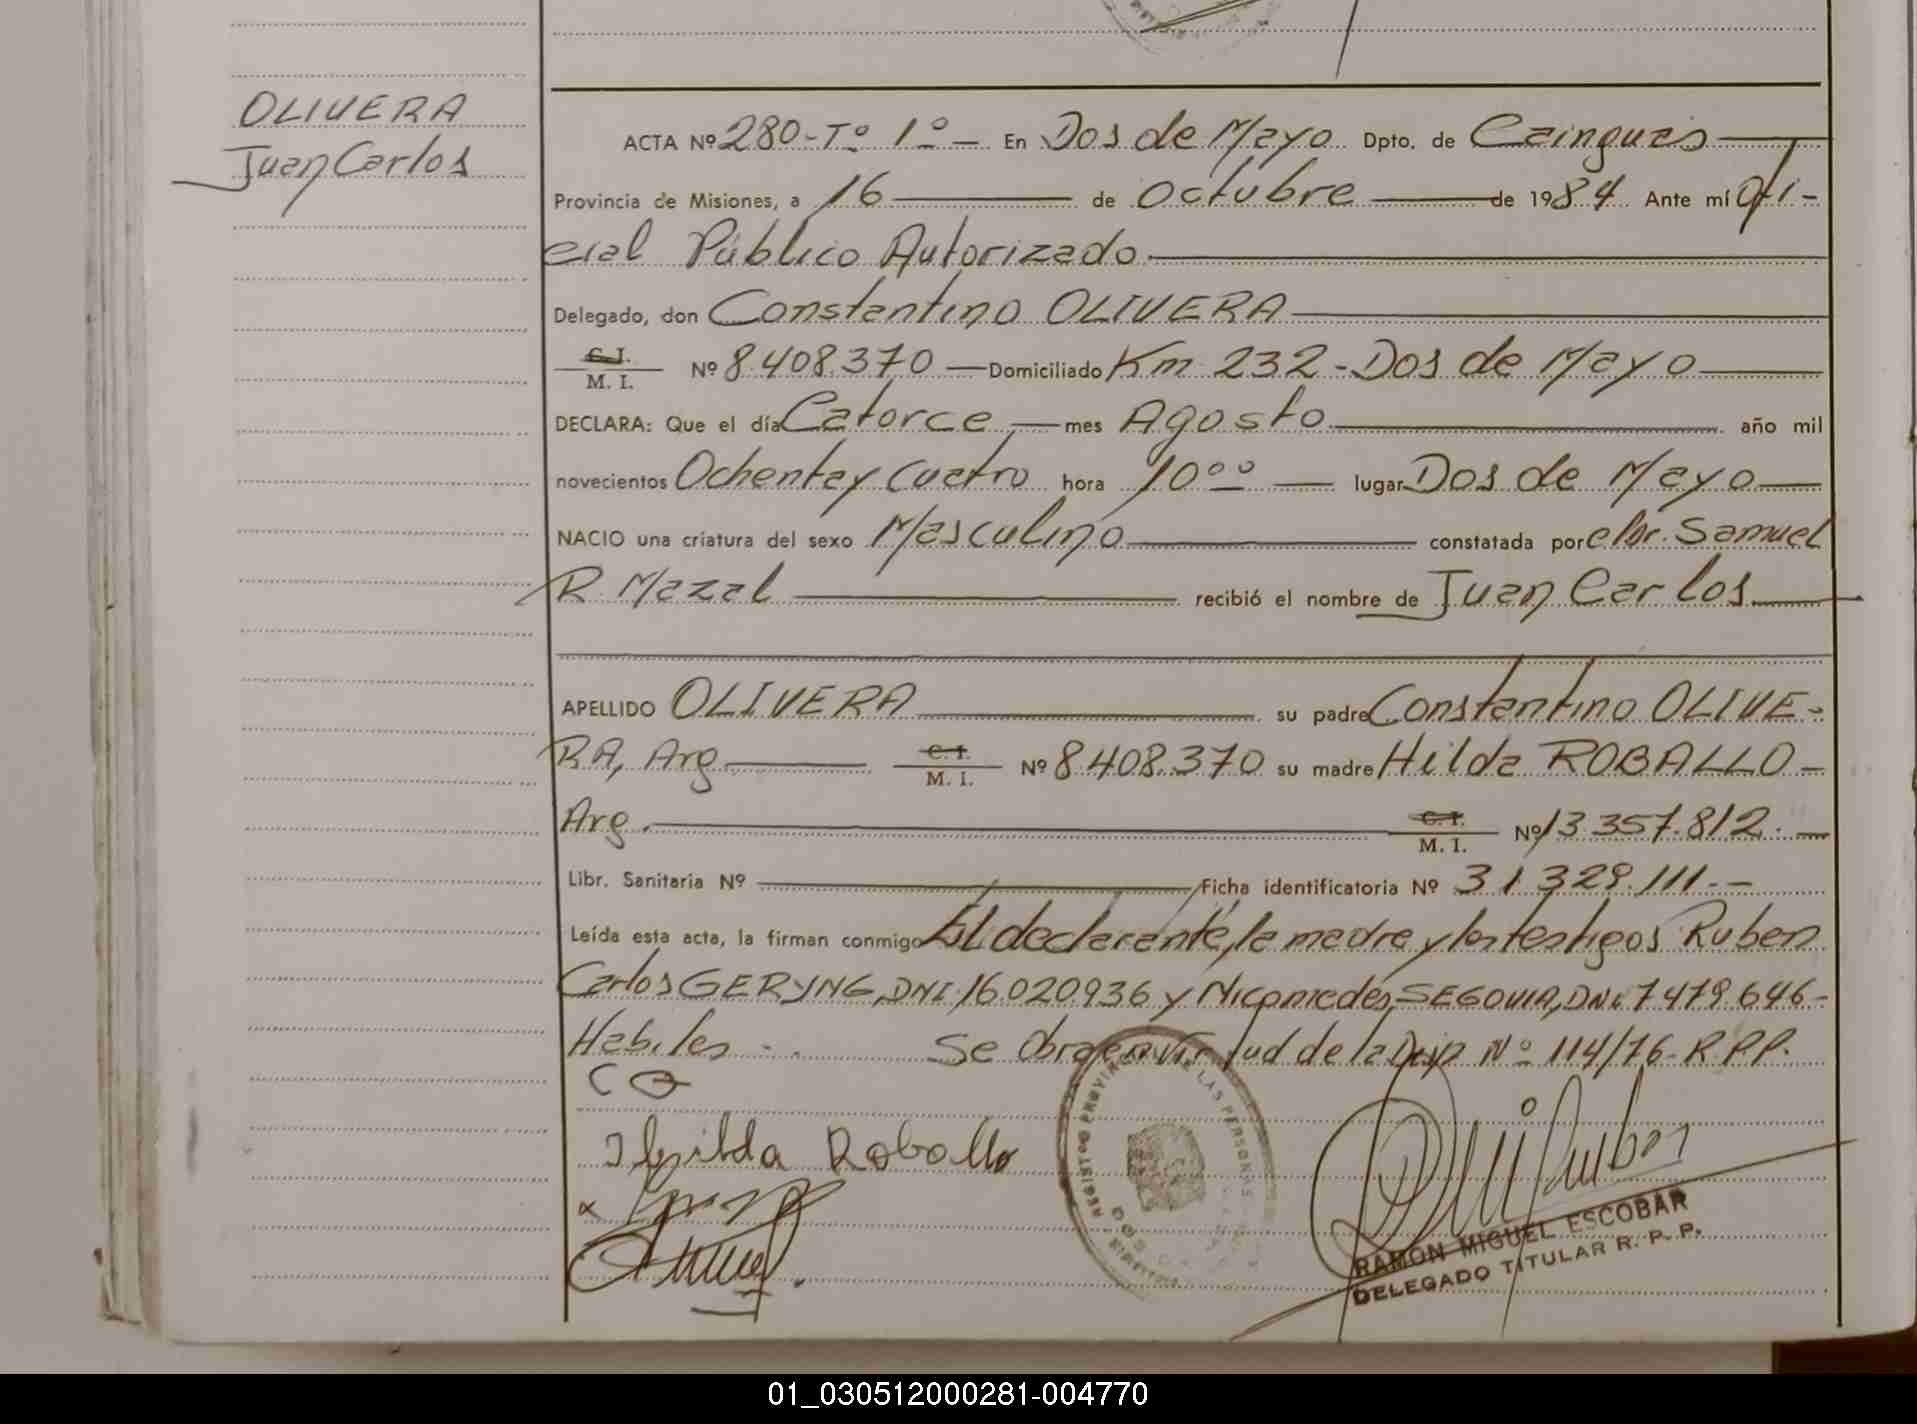 OLIVERA
Juan Carlos
ACTA Nº 280-Tº 1º - En Dos de Mayo Dpto. de Cainguas
Provincia de Misiones, a 16 de Octubre de 1984 Ante mí Ofi-
cial Público Autorizado.
Delegado, don Constantino OLIVERA
C. I.
M. I. Nº 8.408.370 - Domiciliado Km 232 - Dos de Mayo
DECLARA: Que el día Catorce mes Agosto año mil
novecientos Ochenta y Cuatro hora 10ºº lugar Dos de Mayo
NACIO una criatura del sexo Masculino constatada por el Dr. Samuel
R. Mazal recibió el nombre de Juan Carlos
APELLIDO OLIVERA su padre Constantino OLIVE-
RA, Arg. C. I. M. I. Nº 8.408.370 su madre Hilda ROBALLO -
Arg. C. I. M. I. Nº 13.357.812. -
Libr. Sanitaria Nº Ficha identificatoria Nº 31.329.111.-
Leída esta acta, la firman conmigo El declarante, la madre y los testigos Ruben
Carlos GERYNG, DNI. 16.020.936 y Nicomedes SEGOVIA, DNI. 7.479.646-
Habiles - . Se Obra en virtud de la Disp Nº 114/76- R.P.P.
C O
Roballo
REGISTRO PROVINCIAL DE LAS PERSONAS
RAMON MIGUEL ESCOBAR
DELEGADO TITULAR R. P. P.
01_030512000281-004770